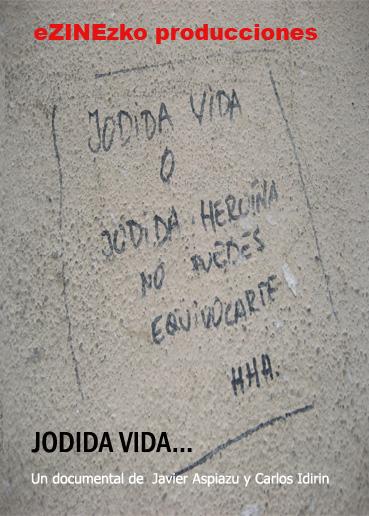 eZINEzko producciones
JODIDA VIDA
O
JODIDA HEROÍNA
NO PUEDES
EQUIVOCARTE
HHA.
JODIDA VIDA...
Un documental de Javier Aspiazu y Carlos Idirin